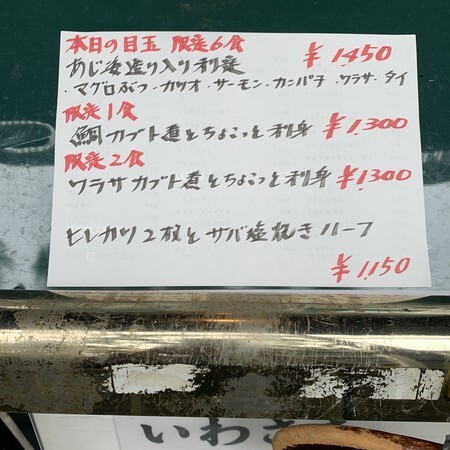 本日の目玉 限定6食
¥1450
あじ姿造り入り刺定
・マグロぶつ・カツオ・サーモン・カンパチ・ワラサ・タイ
限定1食
鯛カブト煮とちょこっと刺身 ¥1,300
限定2食
ワラサカブト煮とちょこっと刺身 ¥1300
ヒレカツ2枚とサバ塩焼きハーフ
¥1,150
いわさ